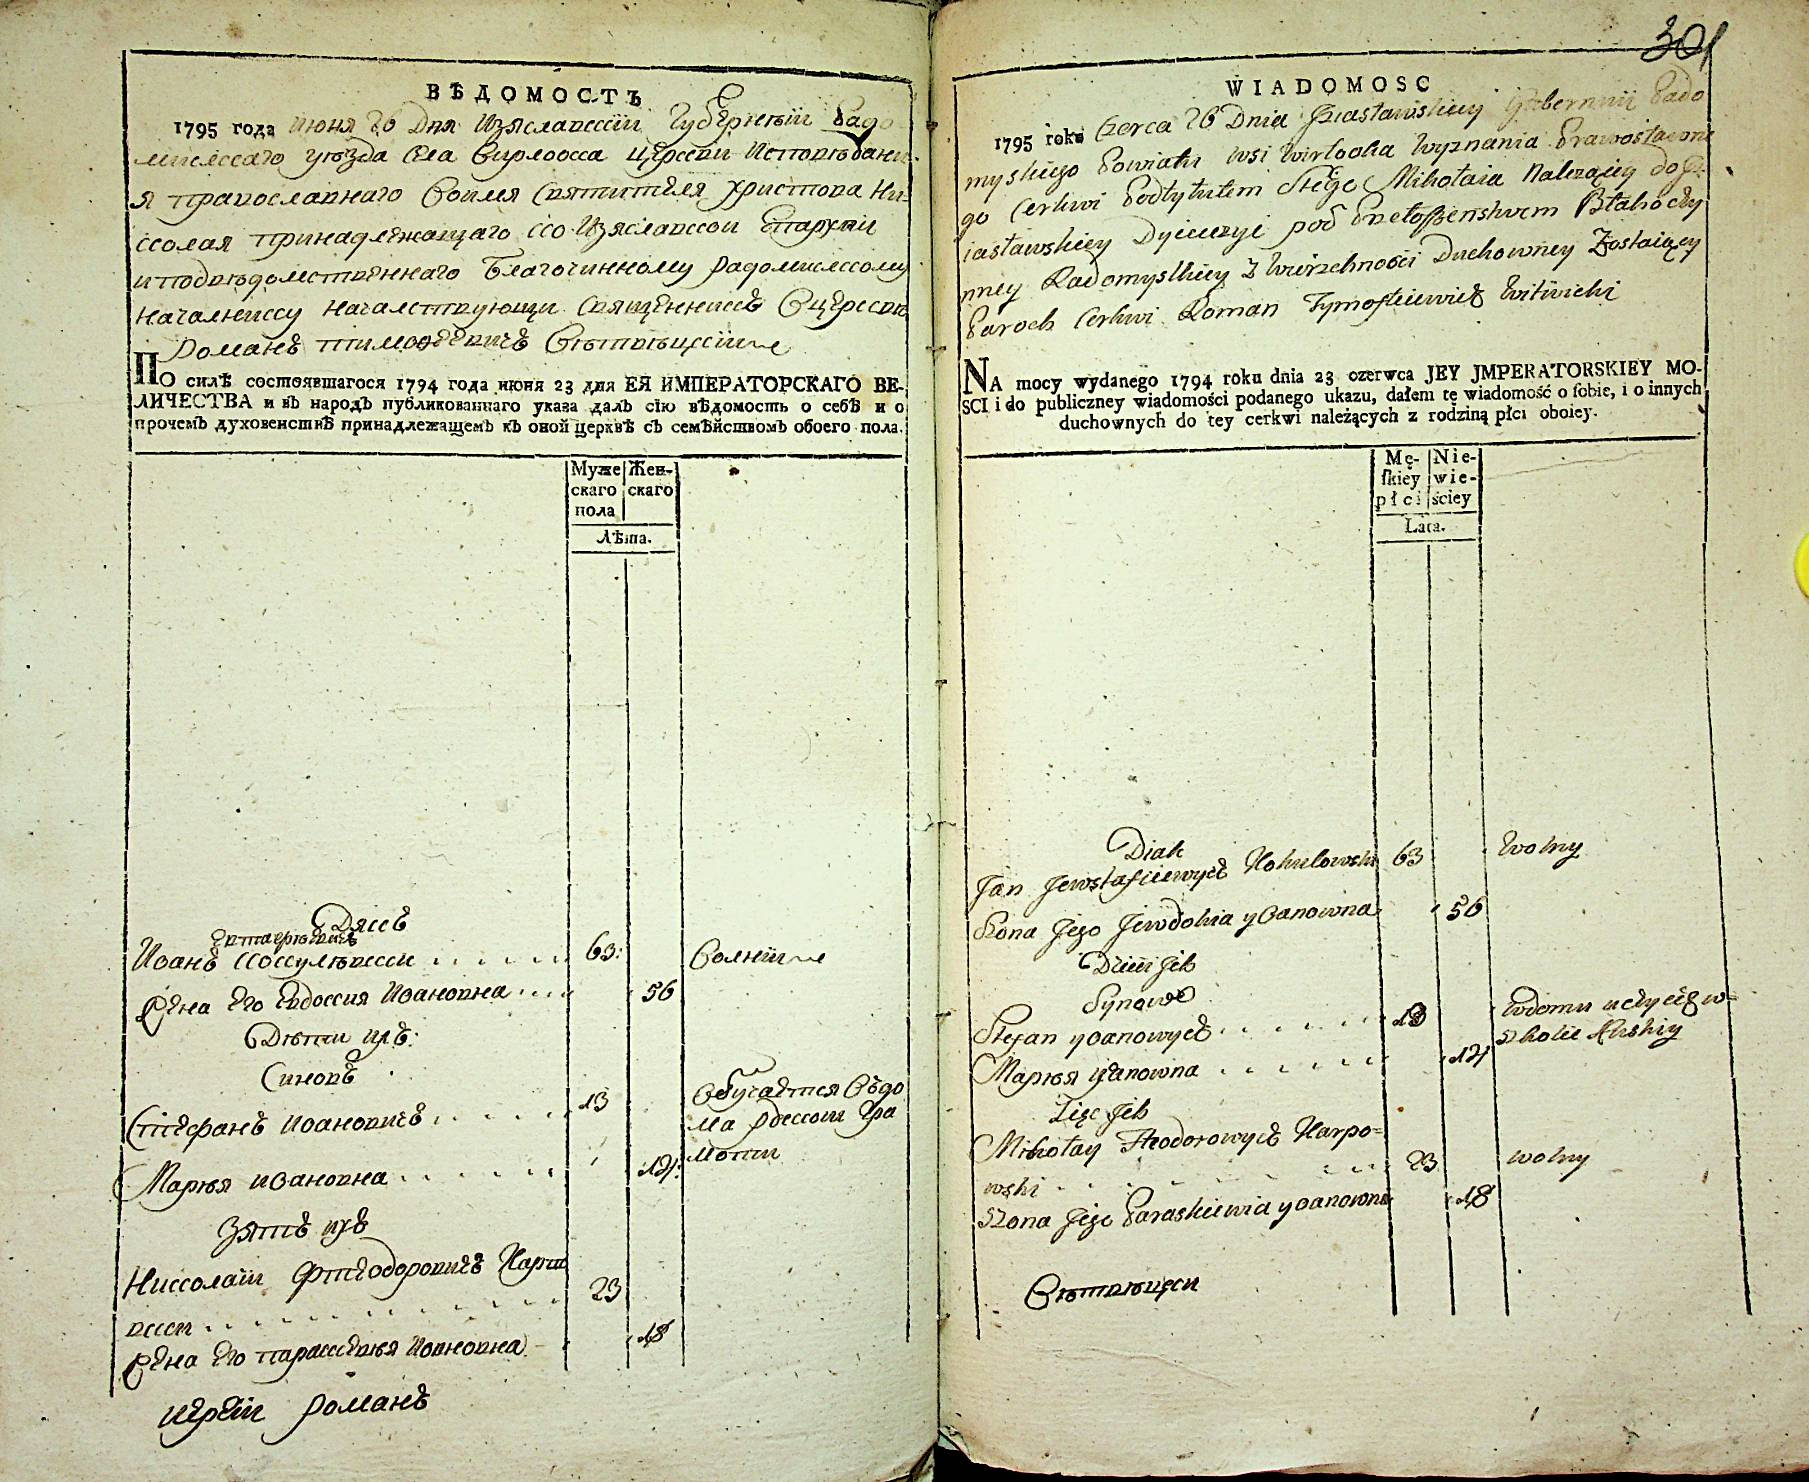 ВѢДОМОСТЬ
1795 года июня 26 Дня Изяславской Губерніи Радо
мисльского уезда села Вирлоока церкви исповѣдани
я православнаго воимя святителя христова Ни-
колая принадлежащаго ко Изяславской Епархіи
и подвѣдомственнаго Благочинному радомислскому
началнику началствующи священникъ Оцеркви
Романъ тимофѣевичъ Свѣтвѣцкій
ПО силѣ состоявшагося 1794 года июня 23 дня ЕЯ ИМПЕРАТОРСКАГО ВЕ-
ЛИЧЕСТВА и въ народъ публикованнаго указа далъ сію вѣдомость о себѣ и о
прочемъ духовенствѣ принадлежащемъ къ оной церквѣ съ семѣйствомъ обоего пола.
Муже Жен-
скаго скаго
пола
Лѣта.
Дякъ
Евтафѣевичъ
Иоанъ Кокулѣвски 63: Волній
Жена Его Евдокия Иоановна 56
Дѣти ихъ:
Синовъ
Стефанъ иоановичъ 13 Обучается Въдо
ма рускои гра
моти
Марѣя иоановна 12:
Зятъ ихъ
Николаій Фтеодоровичъ Карпо
вски 23
Жена Его параскевѣя Иоановна 18
иерей романъ
301
WIADOMOSC
1795 roku Czerca 26 Dnia Iziasławskiey Gubernii Rado
myskiego Powiatu wsi Wirłooka Wyznania Prawosławne
go Cerkwi Podtytułem Stego Mikołaia Należącey do Iz-
iasławskiey Dyecezyi pod Przełożeństwem Błahoczy
nney Radomyslkiey Z Zwierzchności Duchowney Zostaiący
Paroch Cerkwi Roman Tymofiiewicz Witwicki
NA mocy wydanego 1794 roku dnia 23 czerwca JEY JMPERATORSKIEY MO-
SCI i do publiczney wiadomości podanego ukazu, dałem tę wiadomość o sobie, i o innych
duchownych do tey cerkwi należących z rodziną płci oboiey.
Mę- Nie-
skiey wie-
płci ściey
Lata.
Diak
Jan Jewstafiiewycz Kokulowski 63 Wolny
Żona Jego Jewdokia yoanowna 56
Dzieci Jch
Synowe
Stefan yoanowycz 13 Wdomu uczycię w-
szkole Ruskiy
Марѣя иоanowna 12
Zięc Jch
Mikołay Fteodorowycz Karpo-
wski 23 wolny
Żona Jego Paraskiewia yoanowna 18
Свѣтвѣцки